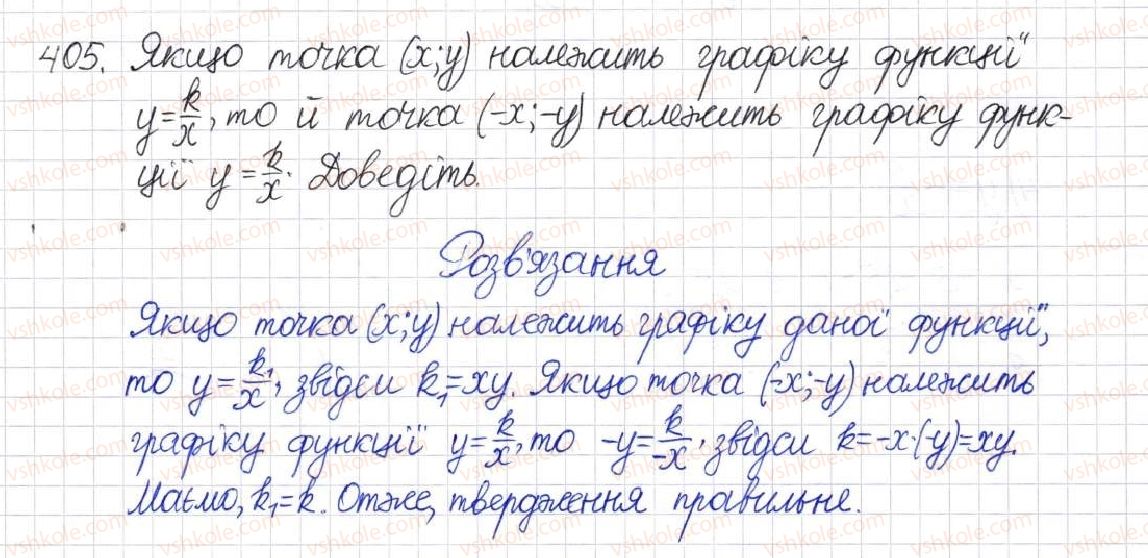 405. Якщо точка (x;y) належить графіку функції
y=k/x, то й точка (-x;-y) належить графіку функ-
ції y=k/x. Доведіть.
Розв'язання
Якщо точка (x;y) належить графіку даної функції,
то y=k₁/x, звідси k₁=xy. Якщо точка (-x;-y) належить
графіку функції y=k/x, то -y=k/-x, звідси k=-x·(-y)=xy.
Маємо, k₁=k. Отже, твердження правильне.